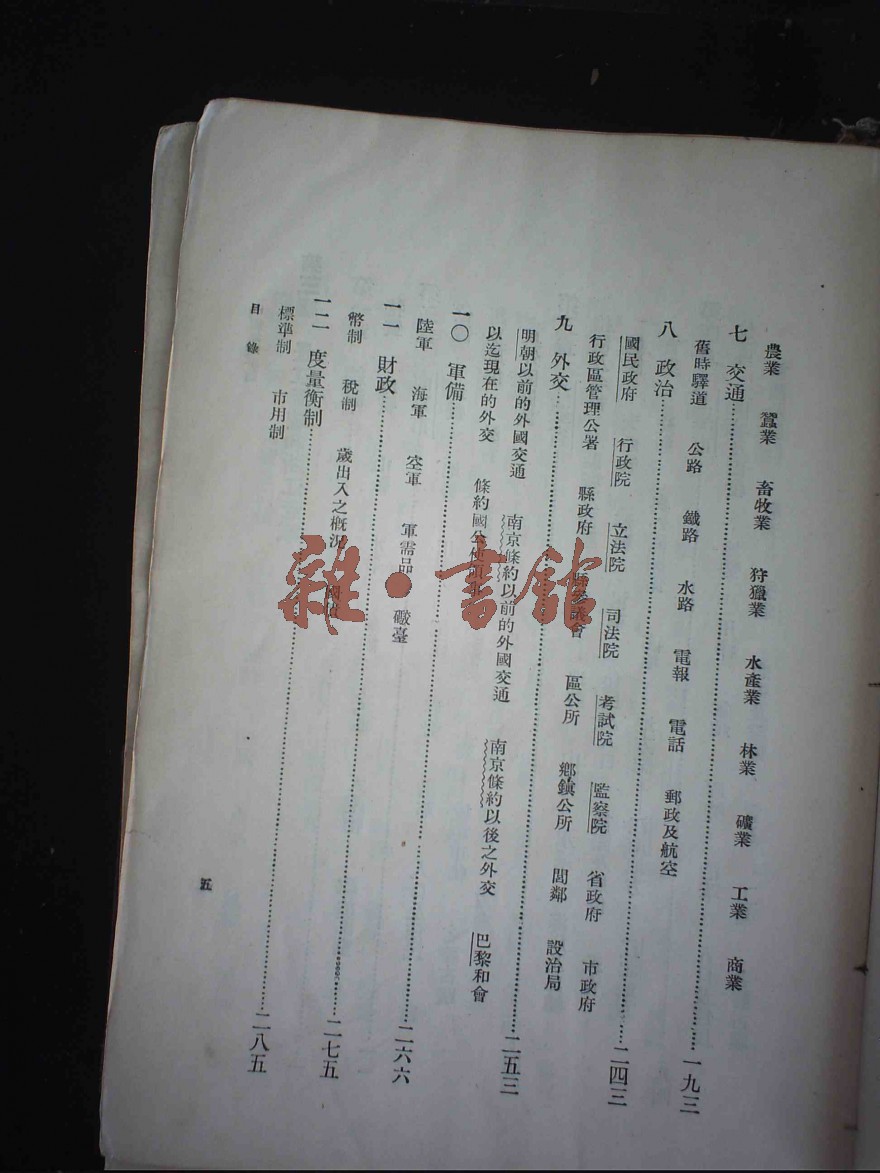 農業 蠶業 畜牧業 狩獵業 水產業 林業 礦業 工業 商業
七 交通……一九三
舊時驛道 公路 鐵路 水路 電報 電話 郵政及航空
八 政治……二四三
國民政府 行政院 立法院 司法院 考試院 監察院 省政府 市政府
行政區管理公署 縣政府 縣參議會 區公所 鄉鎮公所 閭鄰 設治局
九 外交……二五三
明朝以前的外國交通 南京條約以前的外國交通 南京條約以後之外交 巴黎和會
以迄現在的外交 條約國公使
一〇 軍備……二六六
陸軍 海軍 空軍 軍需品 礮臺
一一 財政……二七五
幣制 稅制 歲出入之概況
一二 度量衡制……二八五
標準制 市用制
目錄
五
雜·書館